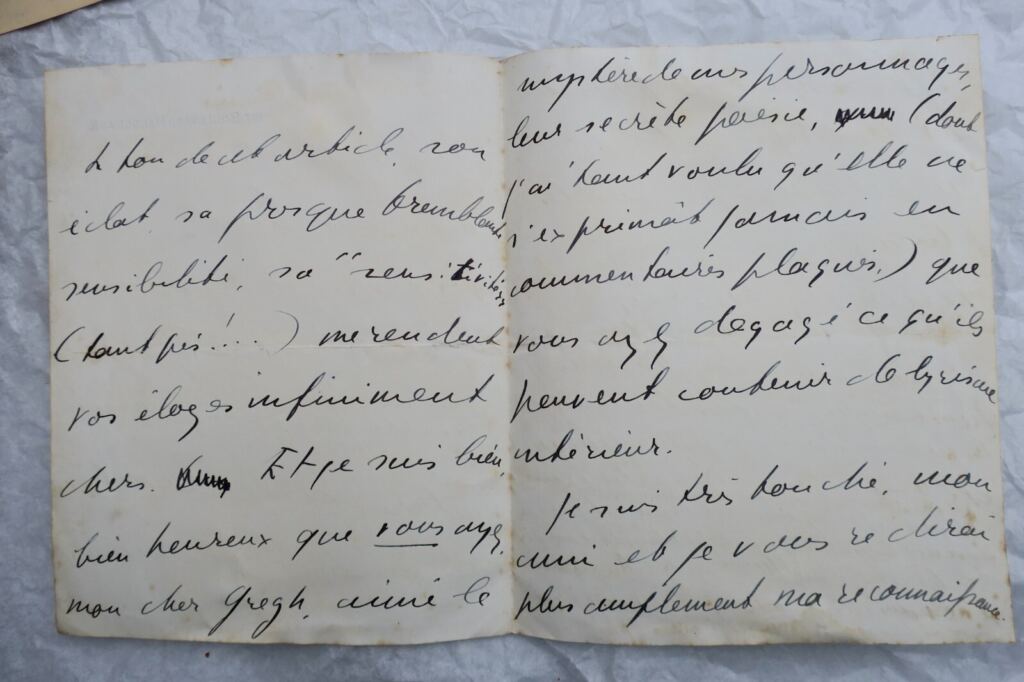 t ton de cet article, son
éclat, sa presque tremblante
sensibilité, sa "sensitivité"
(tant pis!...) me rendent
vos éloges infiniment
chers. Et je suis bien,
bien heureux que vous ayez,
mon cher Gregh, aimé le
mystère de mes personnages,
leur secrète poésie, (dont
j'ai tant voulu qu'elle ne
s'exprimât jamais en
commentaires plaqués,) que
vous ayez dégagé ce qu'ils
peuvent contenir de lyrisme
intérieur.
Je suis très touché, mon
ami et je vous redirai
plus amplement ma reconnaissance.